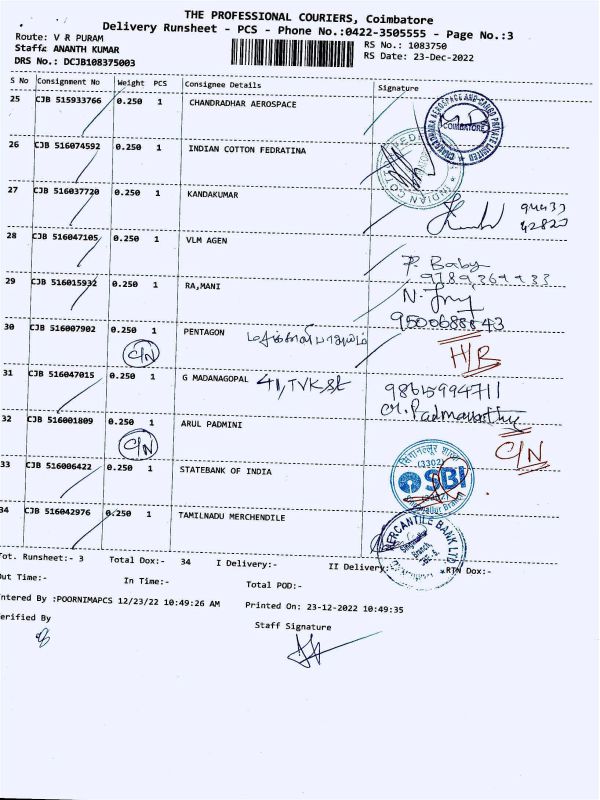 THE PROFESSIONAL COURIERS, Coimbatore
Delivery Runsheet - PCS - Phone No.:0422-3505555 - Page No.:3
Route: V R PURAM
RS No.: 1083750
Staff: ANANTH KUMAR
RS Date: 23-Dec-2022
DRS No.: DCJB108375003
S No Consignment No Weight PCS Consignee Details Signature
25 CJB 515933766 0.250 1 CHANDRADHAR AEROSPACE
COIMBATORE
26 CJB 516074592 0.250 1 INDIAN COTTON FEDRATINA
27 CJB 516037720 0.250 1 KANDAKUMAR
94433
42820
28 CJB 516047105 0.250 1 VLM AGEN
P. Baby
9789369933
29 CJB 516015932 0.250 1 RA,MANI
9500688843
30 CJB 516007902 0.250 1 PENTAGON
C/N
H/R
31 CJB 516047015 0.250 1 G MADANAGOPAL 41, TVK, St
9865994711
M. Padmavathy
32 CJB 516001809 0.250 1 ARUL PADMINI
C/N
C/N
33 CJB 516006422 0.250 1 STATEBANK OF INDIA
(3302)
SBI
34 CJB 516042976 0.250 1 TAMILNADU MERCHENDILE
MERCANTILE BANK LTD
Tot. Runsheet:- 3 Total Dox:- 34 I Delivery:- II Delivery:- RTN Dox:-
Out Time:- In Time:- Total POD:-
Entered By :POORNIMAPCS 12/23/22 10:49:26 AM Printed On: 23-12-2022 10:49:35
Verified By
Staff Signature